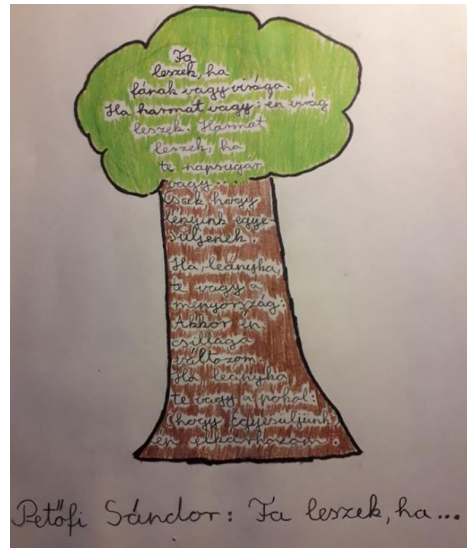 Fa
leszek, ha
fának vagy virága.
Ha harmat vagy: én virág
leszek. Harmat
leszek, ha
te napsugár
vagy...
csak, hogy
lényink egye-
süljenek.
Ha, leányka,
te vagy a
menyország:
Akkor én
csillagá
változom.
Ha leányka
te vagy a pokol:
(hogy egyesüljünk)
én elkárhozom.
Petőfi Sándor: Fa leszek, ha...